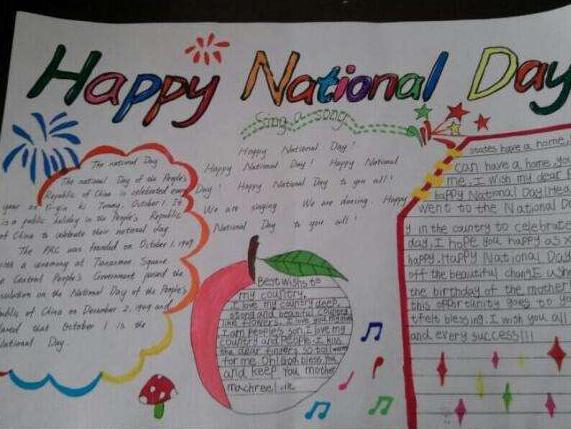 Happy National Day
Sing a song
The national Day
The national Day of the People's
Republic of China is celebrated every
year on October 1. It
is a public holiday in the People's Republic
of China to celebrate their national day.
The PRC was founded on October 1, 1949
with a ceremony at Tiananmen Square.
Central People's Government passed the
Resolution on the National Day of the People's
Republic of China on December 2, 1949 and
that October 1 is the
National Day.
Happy National Day!
Happy National Day! Happy National
Day! Happy National Day to you all!
We are singing. We are dancing. Happy
National Day to you all!
Best wishes to
my country.
I love my country deep,
and beautiful
like flowers. I love you
I am people's so I love my
country and people. I kiss
the dear so tall
for me. Oh! God bless you
and keep you mother
machree!
states have a home,
can have a home, you
me. I wish my dear
happy National Day!
went to the National Day
y in the country to celebrate
day, I hope you happy as
happy. Happy National Day
off the beautiful wish
the birthday of the mother
this opportunity goes to you
felt blessing. I wish you all
and every success!!!